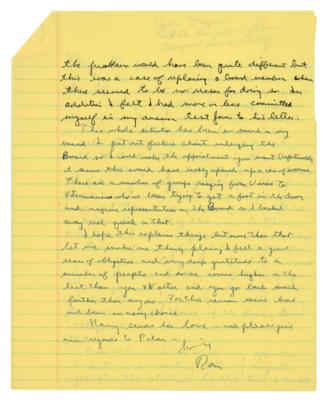 the problem would have been quite different but
this was a case of replacing a board member when
there seemed to be no reason for doing so. In
addition I felt I had more or less committed
myself in my answer last form to his letter.
This whole situation has been so much on my
mind. I put out feelers about enlarging the
Board so I could make the appointment you want. Unfortunately
it seems this would have really opened up a can of worms.
There are a number of groups ranging from to
Vietnamese who've been trying to get a foot in the door
and acquire representation on the Board so I backed
away real quick on that.
I hope this explains things but more than that
let me make one thing plain; I feel a great
sense of obligation and very deep gratitude to a
number of people and no one comes higher on the
list than you & Walter and you go back much
farther than anyone. For this reason mine has
not been an easy choice.
Nancy sends her love – and please give
our regards to
Ron